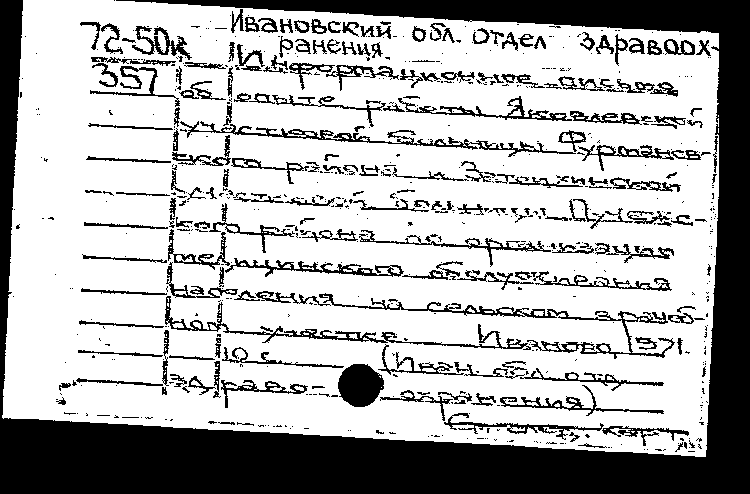 Ивановский обл. отдел здравоох-
72-50к ранения.
357 Информационные письма
об опыте работы Яковлевской
участковой больницы Фурманов-
ского района и Затеихинской
участковой больницы Пучежс-
кого района по организации
медицинского обслуживания
населения на сельском врачеб-
ном участке. Иваново, 1971.
10 с. (Иван. обл. отд.
здраво- охранения)
См. след. карт.